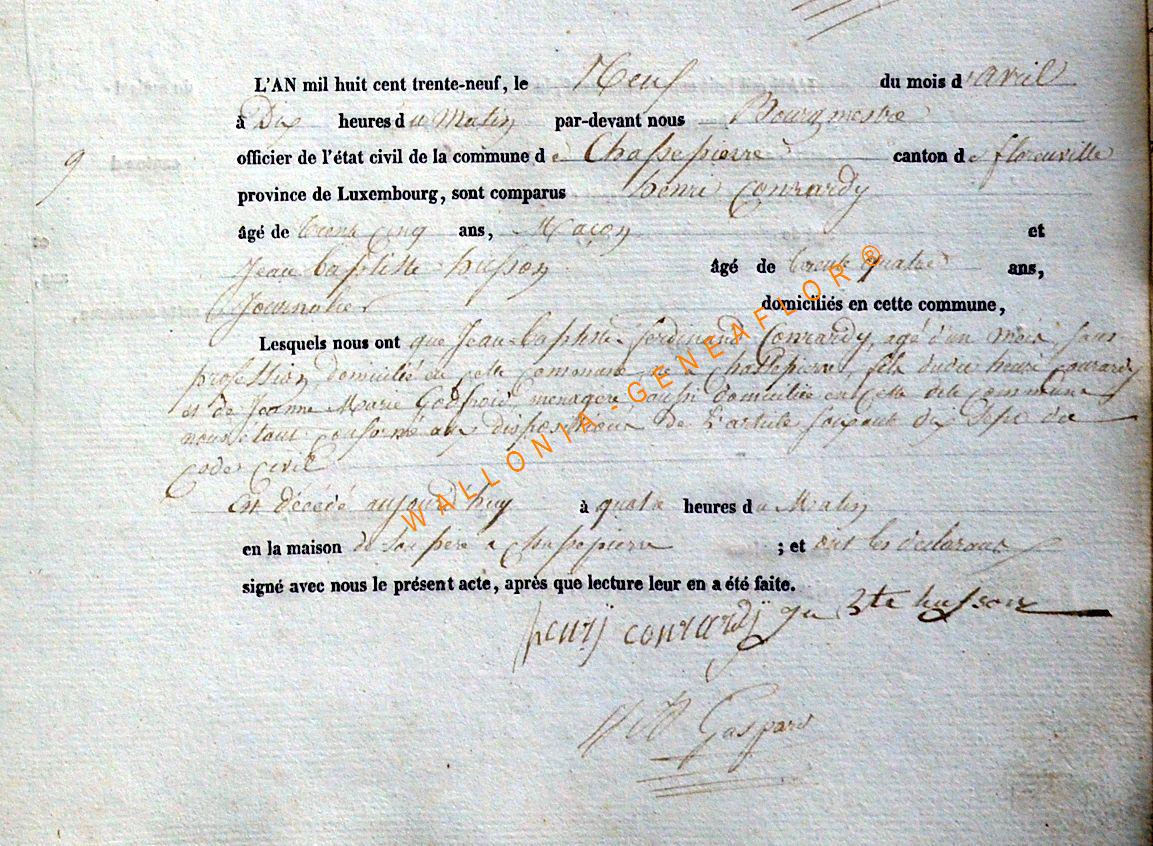 L'AN mil huit cent trente-neuf, le Neuf du mois d'avril
à Dix heures du Matin par-devant nous Bourgmestre
9 officier de l'état civil de la commune de Chassepierre canton de florenville
province de Luxembourg, sont comparus henri Conrardy
âgé de trente cinq ans, Maçon et
Jean baptiste husson âgé de trente quatre ans,
Journalier domiciliés en cette commune,
Lesquels nous ont que Jean baptiste ferdinand Conrardy, agé d'un mois, sans
profession domicilié en cette commune de Chassepierre, fils dudit henri conrardy
et de Jeanne Marie Godfroid, menagère aussi domiciliée en cette dite commune
nous étant conformé aux dispositions de l'article soixante dix sept du
code civil
Est décédé aujourd'huy à quatre heures du Matin
en la maison de son pere a Chassepierre ; et ont les déclarans
signé avec nous le présent acte, après que lecture leur en a été faite.
henrÿ conrardÿ jn Bte husson
Gaspard
WALLONIA-GENEAFLOR®